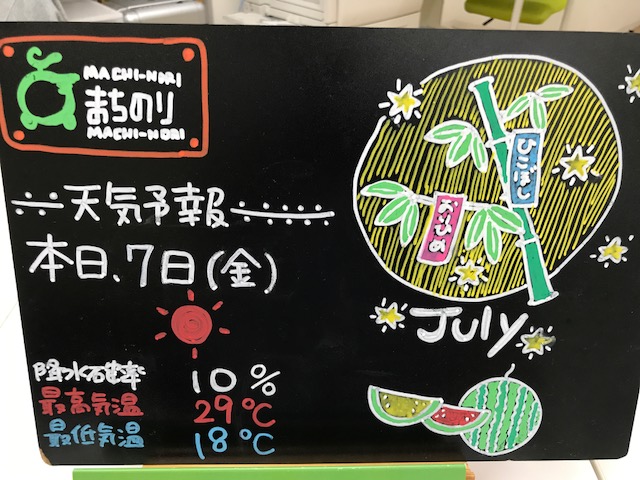 MACHI-NORI
まちのり
MACHI-NORI
天気予報
本日、7日(金)
降水確率 10%
最高気温 29℃
最低気温 18℃
ひこぼし
おりひめ
July